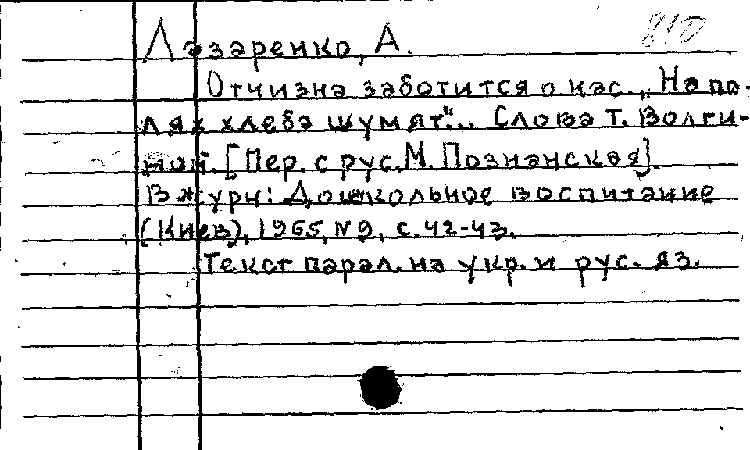 810
Лазаренко, А.
Отчизна заботится о нас. „На по-
лях хлеба шумят"... Слова Т. Волги-
ной. [Пер. с рус. М. Познанская].
В журн: Дошкольное воспитание
(Киев), 1965, №9, с. 42-43.
Текст парал. на укр. и рус. яз.